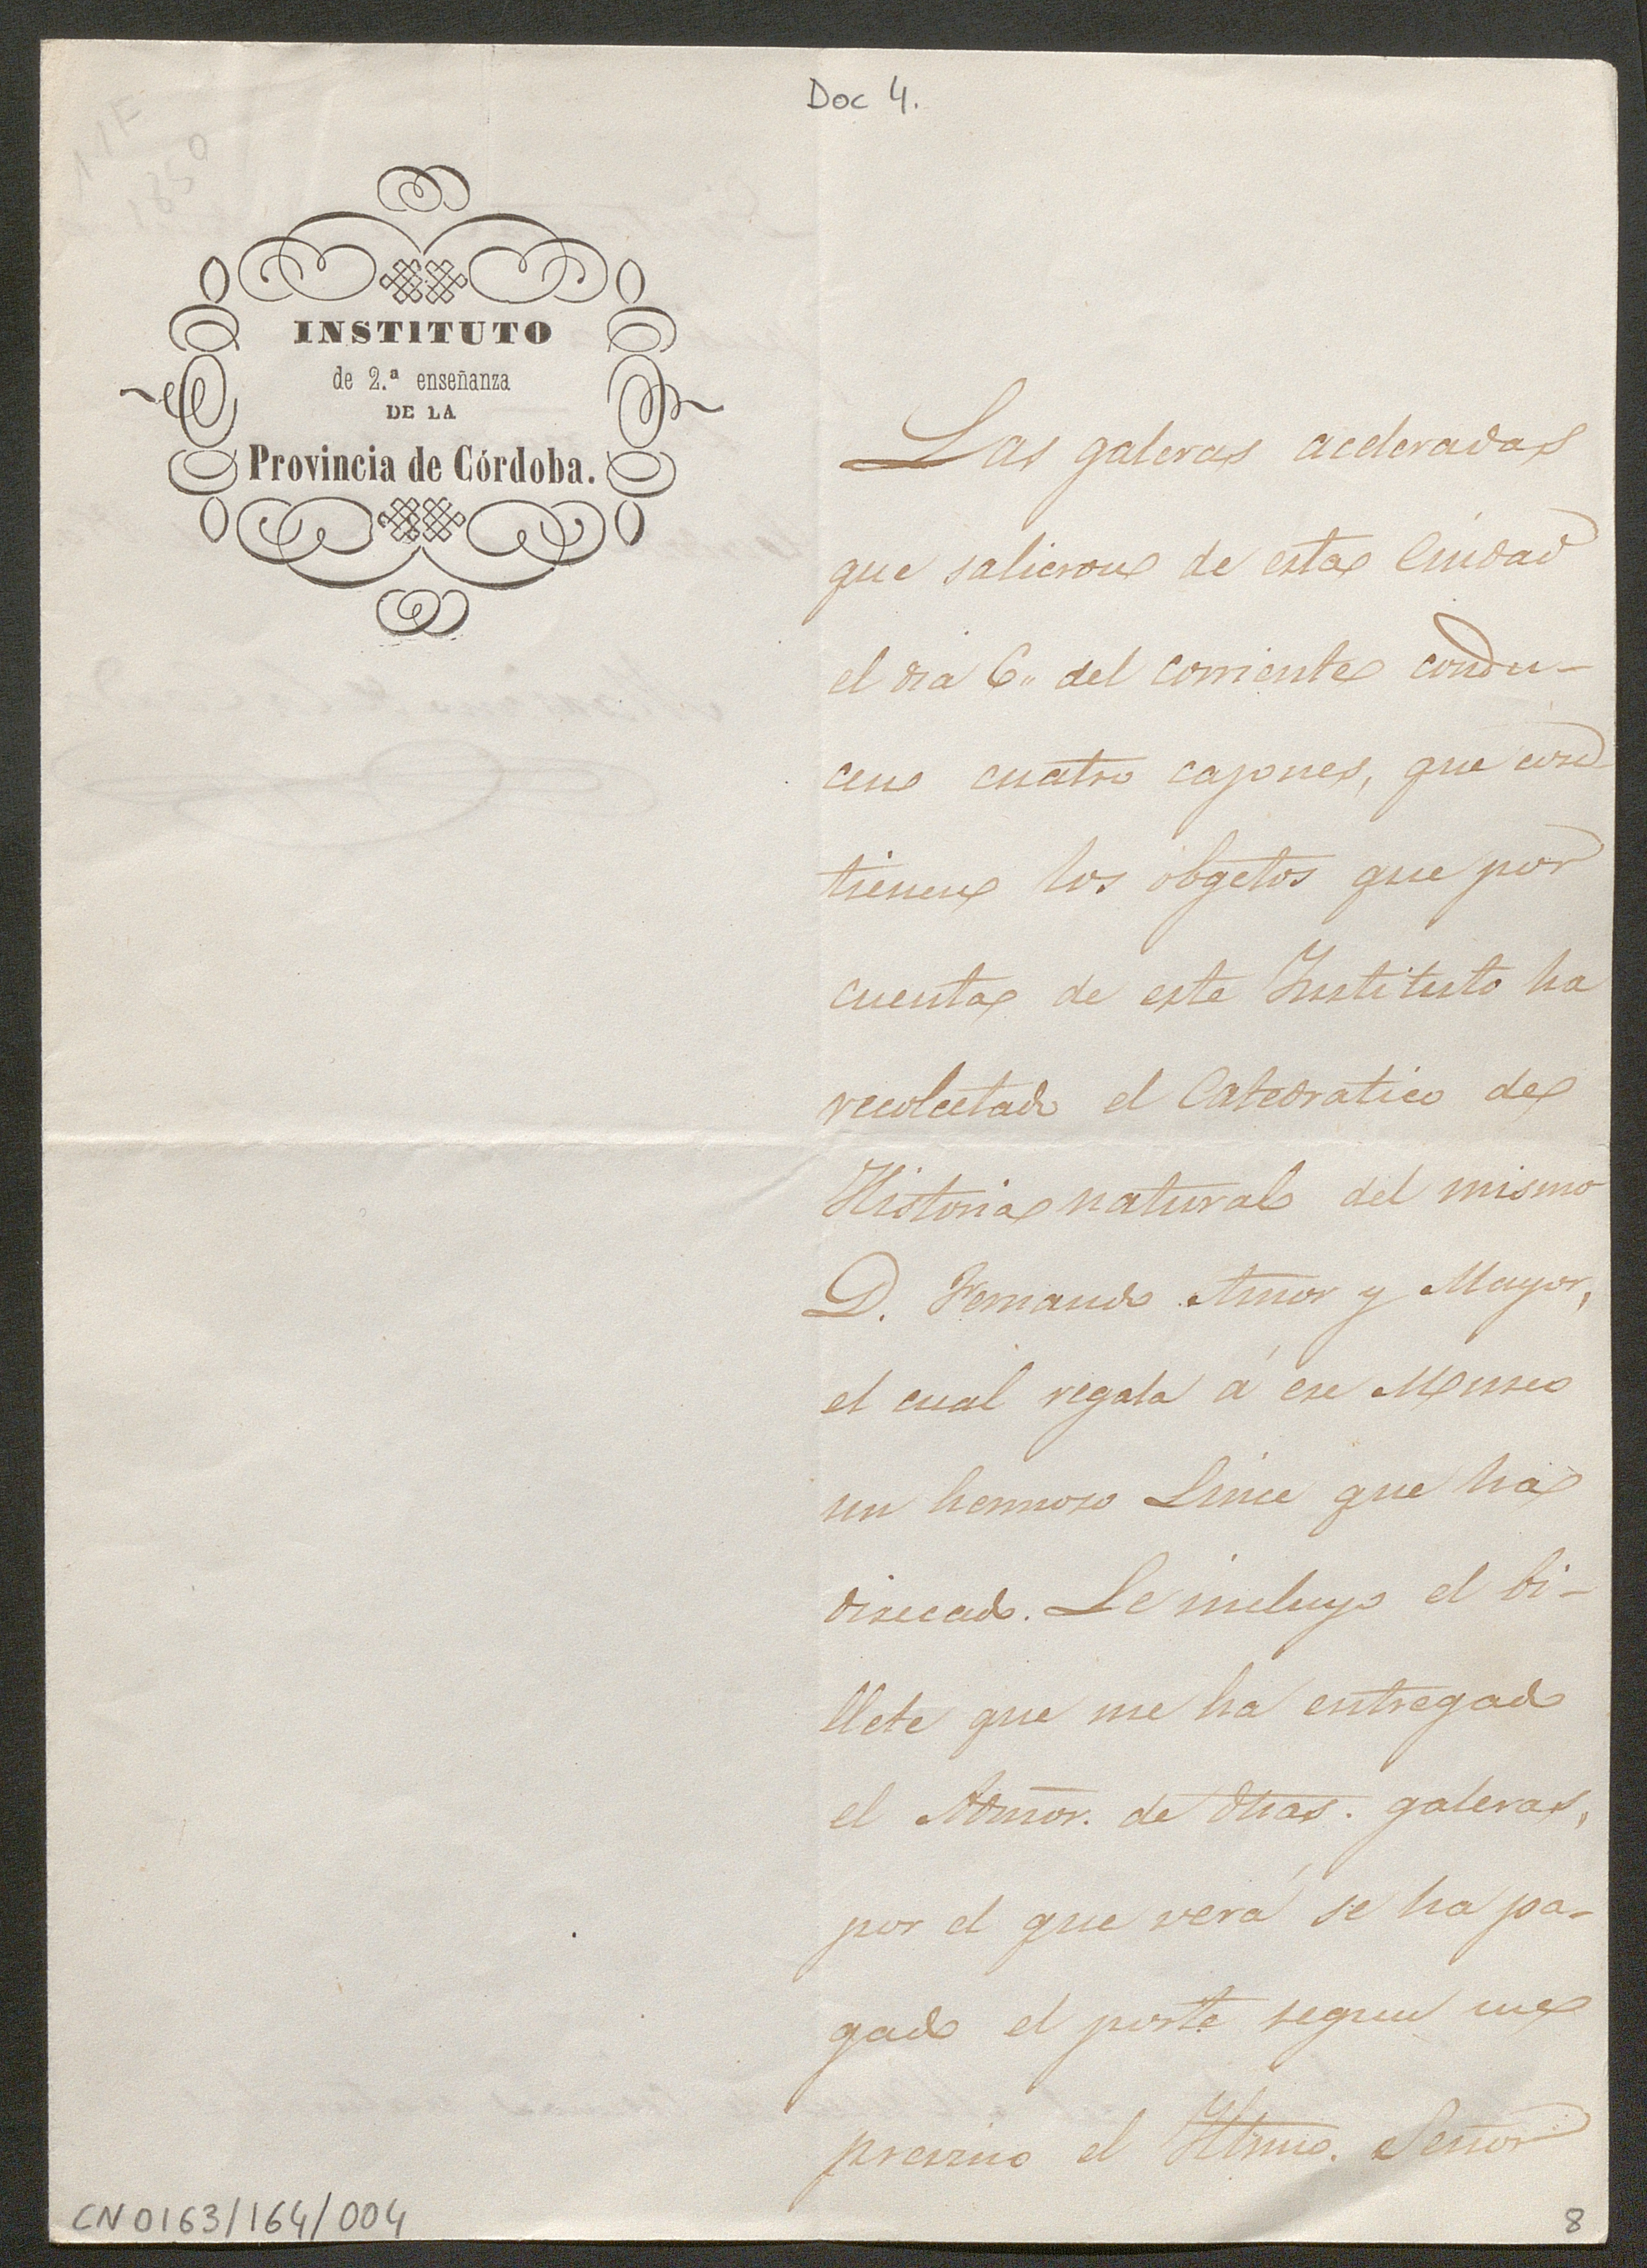 Doc 4.
INSTITUTO
de 2.ª enseñanza
DE LA
Provincia de Córdoba.
Las galeras aceleradas
que salieron de esta Ciudad
el dia 6,, del corriente condu-
cen cuatro cajones, que con
tienen los obgetos que por
cuenta de este Instituto ha
recolectado el Catedratico de
Historia natural del mismo
D. Fernando Amor y Mayor,
el cual regala á ese Museo
un hermoso Lince que ha
disecado. Le incluyo el bi-
llete que me ha entregado
el Admor. de dhas. galeras,
por el que verá se ha pa-
gado el porte segun me
previno el Iltmo. Señor
CN0163/164/004
8